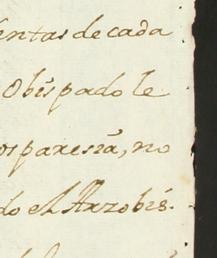 entas de cada
Obispado le
os paresiá, no
do el Arzobis.